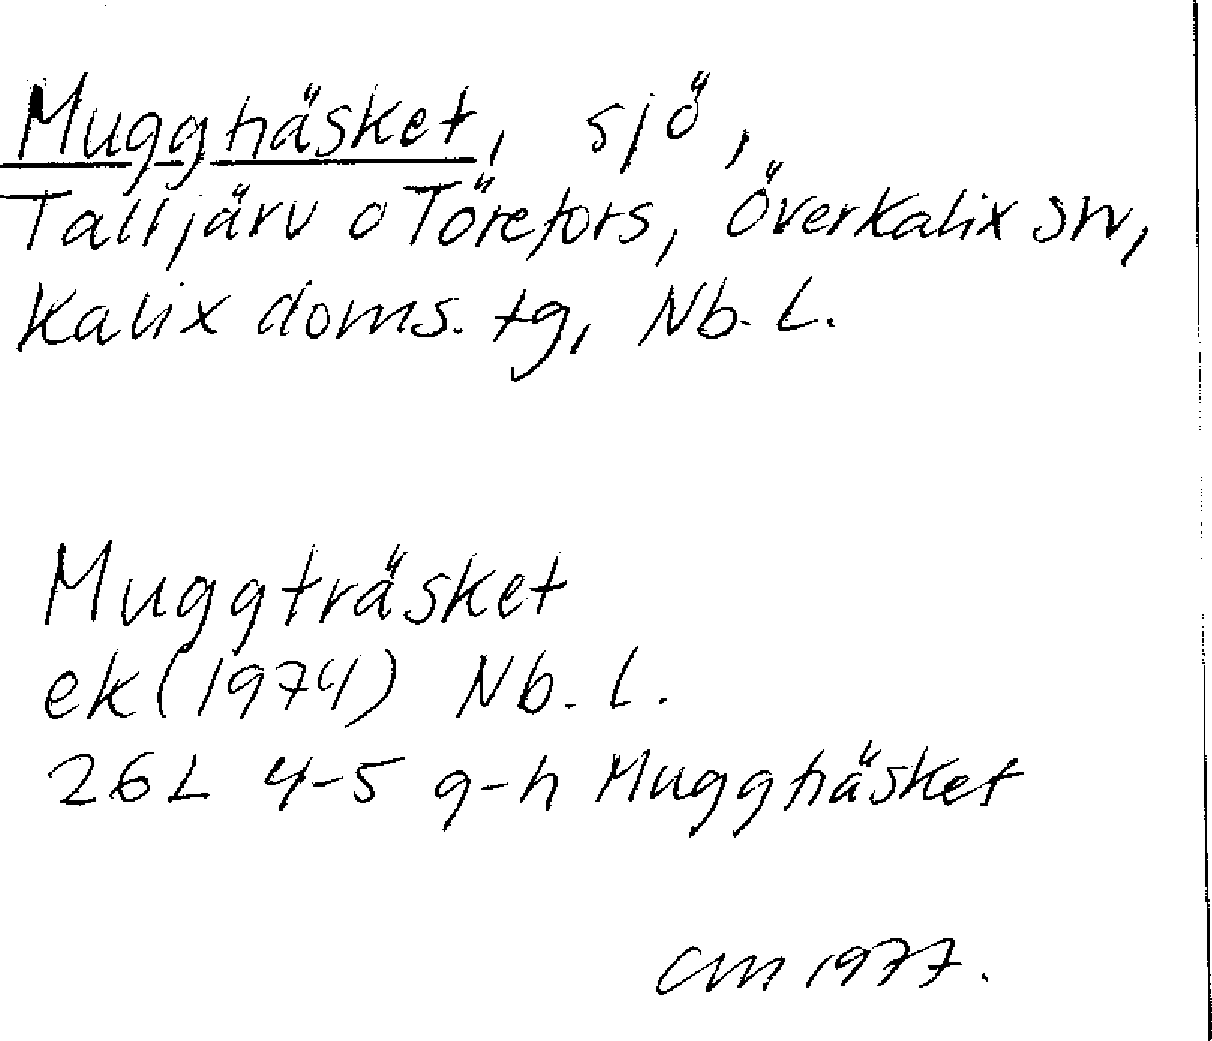 Muggträsket, sjö,
Talljärv o Törefors, Överkalix sn,
Kalix doms. tg, Nb. L.
Muggträsket
ek (1974) Nb. L.
26L 4-5 g-h Muggträsket
CM 1977.